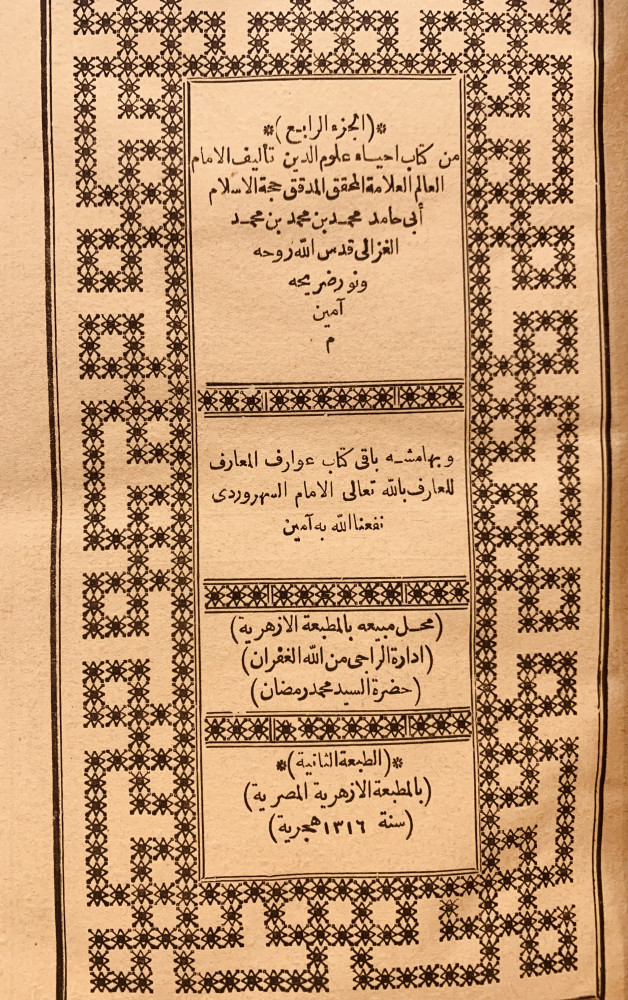 *(الجزء الرابع)*
من كتاب احياء علوم الدين تأليف الامام
العالم العلامة المحقق المدقق حجة الاسلام
أبى حامد محمد بن محمد بن محمد
الغزالى قدس الله روحه
ونور ضريحه
آمين
م
وبهامشه باقى كتاب عوارف المعارف
للعارف بالله تعالى الامام السهروردى
نفعنا الله به آمين
(محل مبيعه بالمطبعة الازهرية)
(ادارة الراجى من الله الغفران)
(حضرة السيد محمد رمضان)
*(الطبعة الثانية)*
(بالمطبعة الازهرية المصرية)
(سنة ١٣١٦ هجرية)